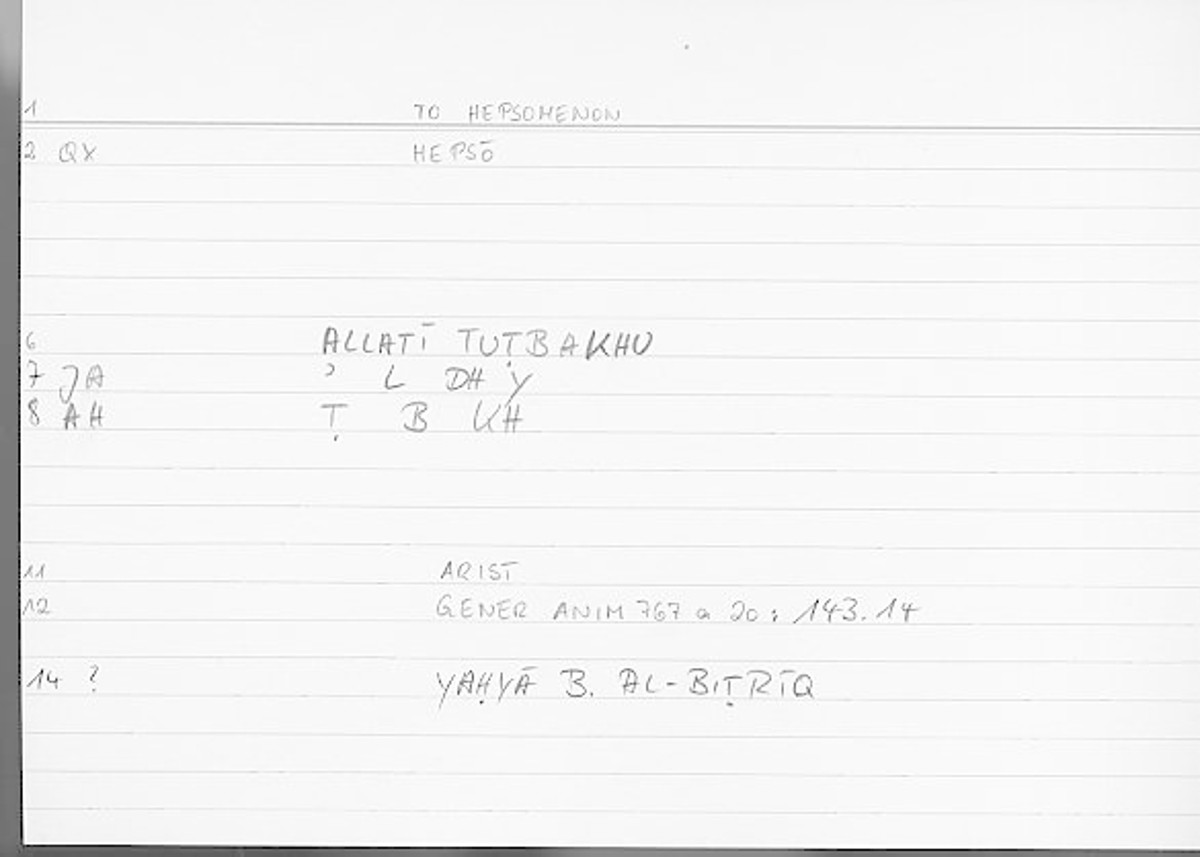 1 TO HEPSOMENON
2 QX HEPSŌ
6 ALLATĪ TUṬBAKHU
7 JA ʾ L DH Y
8 AH Ṭ B KH
11 ARIST
12 GENER ANIM 767 a 20 : 143.14
14 ? YAḤYĀ B. AL-BIṬRĪQ